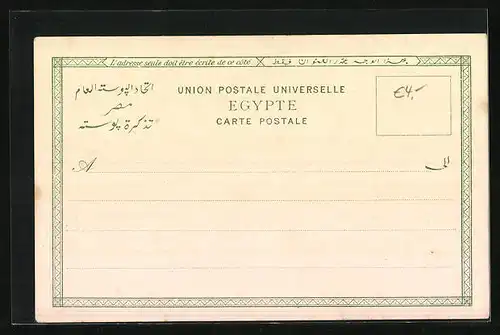 L'adresse seule doit être écrite de ce côté هذا الوجه يحرر العنوان فقط
اتحاد البوسته العام
مصر
تذكرة بوسته
UNION POSTALE UNIVERSELLE
EGYPTE
CARTE POSTALE
€4.-
A
الى